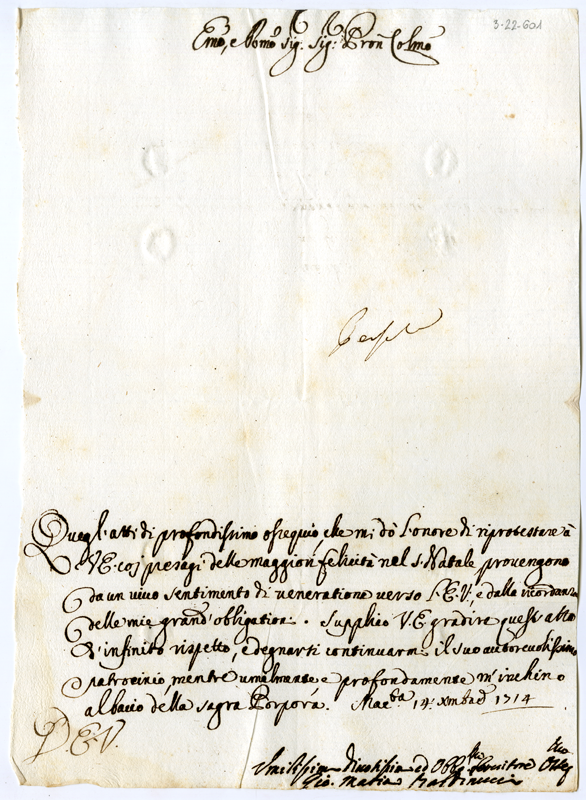 3-22-601
Emo, e Rmo Sig. Sig. Pron Colmo
Quegl'atti di profondissimo ossequio, che mi dò l'onore di riprotestare à
V.E. coj presagi delle maggiori felicità nel S. Natale provengono
da un vivo sentimento di veneratione verso l'E.V., e dalla ricordanza
delle mie grand' obligationi. Supplico V.E. gradire quest' atto
d'infinito rispetto, e degnarsi continuarmi il suo autorevolissimo
Patrocinio, mentre umilmente, e profondamente m'inchino
al bacio della sagra Porpora. Macta 14. Xmbre 1714
D.E.V.
Umilissimo Divotissimo ed Obblmo Servitore Osseqmo
Gio. Maria